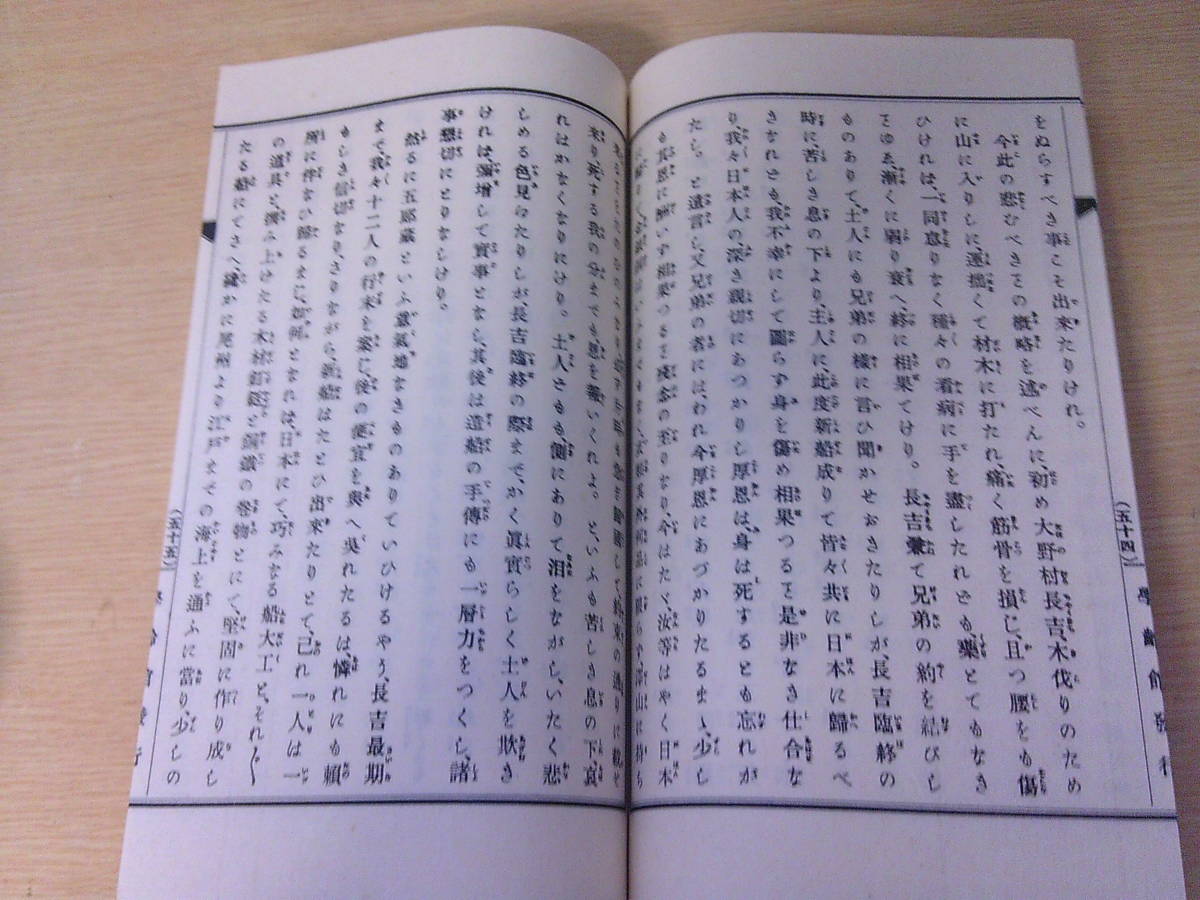 をぬらすべき事こそ出来たりけれ。
今此の悲むべきことの概略を述べんに、初め大野村長吉、木伐りのため
に山に入りしに、運拙くて材木に打たれ、痛く筋骨を損じ、且つ腰をも傷
ひければ、一同怠りなく種々の看病に手を盡したれども、藥とてもなき
ことゆゑ、漸くに弱り衰へ、終に相果てけり。長吉兼て兄弟の約を結びし
ものありて、土人にも兄弟の樣に言ひ聞かせおきたりしが、長吉臨終の
時に、苦しき息の下より、主人に、此度新船成りて皆々共に日本に歸るべ
きなれども、我不幸にして圖らず身を傷め相果つること是非なき仕合な
り、我々日本人の、深き親切にあつかりし厚恩は、身は死するとも忘れが
たし。と遺言し、又兄弟の者には、われ今厚恩にあづかりたるまゝ、少し
も其恩に酬いず相果つること殘念の至りなり、今はたゞ、汝等はやく日本
來り、死する我の分までも恩を報いくれよ。といふも苦しき息の下、哀
れはかなくなりにけり。土人さもも、側にありて泪をながし、いたく悲
しめる色見えたりしが、長吉臨終の際まで、かく眞實らしく土人を欺き
ければ、彌增して實事となら、其後は造船の手傳にも一層力をつくし、諸
事懇切にとりなしけり。
然るに五郎藏といふ意氣地なきものありていひけるやう、長吉最期
まで我々十二人の行末を案じ、後の便宜を與へ呉れたるは、憐れにも賴
もしき信切なり、さりながら、新船はたとひ出來たりとて、己れ一人は一
所に伴ない歸るまじ、如何となれは、日本にて、巧みなる船大工と、それ〳〵
の道具と、撰み上けたる木材、鉛鋲と、鍋鐵の卷物とにて、堅固に作り成し
たる船にてさへ、纔かに尾州より江戸までの海上を通ふに當り、少しの
(五十四)
學齡館發行
(五十五)
學齡館發行